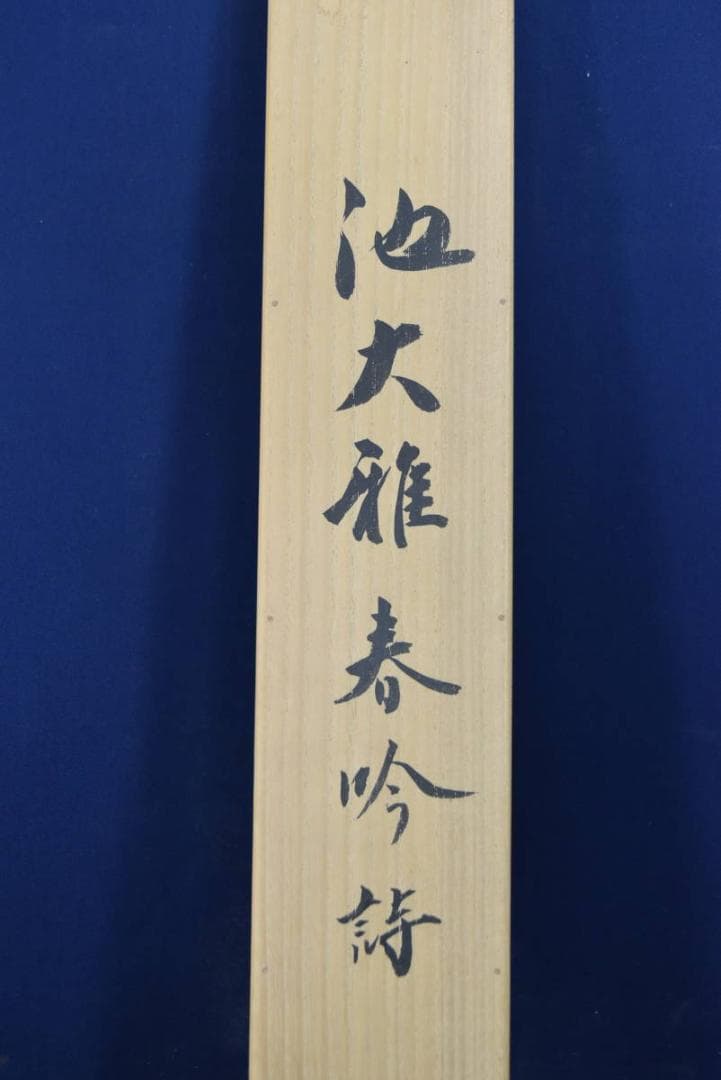 池大雅春吟詩